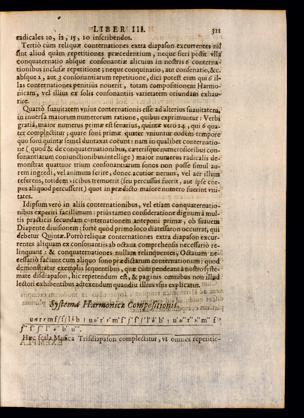 LIBER III. 311
radicales 10, 12, 15, 20 inscribendos.
Tertiò cum reliquæ conternationes extra diapason excurrentes nil
sint aliud quàm repetitiones præcedentium, neque fieri possit vlla
conquaternatio absque consonantiæ alicuius in nostris 6 conterna-
tionibus inclusæ repetitione; neque conquinatio, aut consenatio, &c.
absque 2, aut 3 consonantiarum repetitione, dici potest eum qui
las conternationes penitius nouerit, totam compositionem Harmo-
nicam, vel illius ex solis consonantiis varietatem oriundam exhau-
rire.
Quartò suauitatem vnius conternationis esse ad alterius suauitatem,
in inuersa maiorum numerorum ratione, quibus exprimuntur: Verbi
gratiâ, maior numerus primæ est senarius, quintæ verò 24, qui 6 qua-
ter complectitur; quare soni primæ quater vniuntur eodem tempore
quo soni quintæ semel duntaxat coëunt; nam in qualibet conternatio-
ne (quod & de conquaternationibus, cæterisque numerosioribus con-
sonantiarum coniunctionibus intellige) maior numerus radicalis de-
monstrat quatuor trium consonantiarum sonos non posse simul au-
rem ingredi, vel animum ferire, donec acutior neruus, vel aër illum
referens, totidem vicibus tremuerit (seu percussus fuerit, aut ipse cor-
pus aliquod percusserit) quot in prædicto maiore numero fuerint vni-
tates.
Idipsum verò in aliis conternationibus, vel etiam conquaternatio-
nibus experiri facillimum: priùs tamen consideratione dignum à mul-
tis practicis secundam conternationem anteponi primæ, ob suauem
Diapente diuisionem; fortè quòd primo loco diuisa sono occurrat, qui
debetur Quintæ. Porrò reliquæ conternationes extra diapason excur-
rentes aliquam ex consonantiis ab octaua comprehensis necessariò re-
linquunt; & conquaternationes nullam relinquentes, Octauam ne-
cessariò faciunt cum aliquo sono prædictarum conternationum: quod
demonstratur exemplis sequentibus, quæ cùm pendeant à nostro syste-
mate disdiapason, hic repetendum est, & paginis omnibus non illud
lectori exhibentibus adtexendum quandiu illius vsus explicatur.
Systema Harmonicæ Compositionis.
Hæc scala Musica Trisdiapason complectitur, vt omnes repetitio-